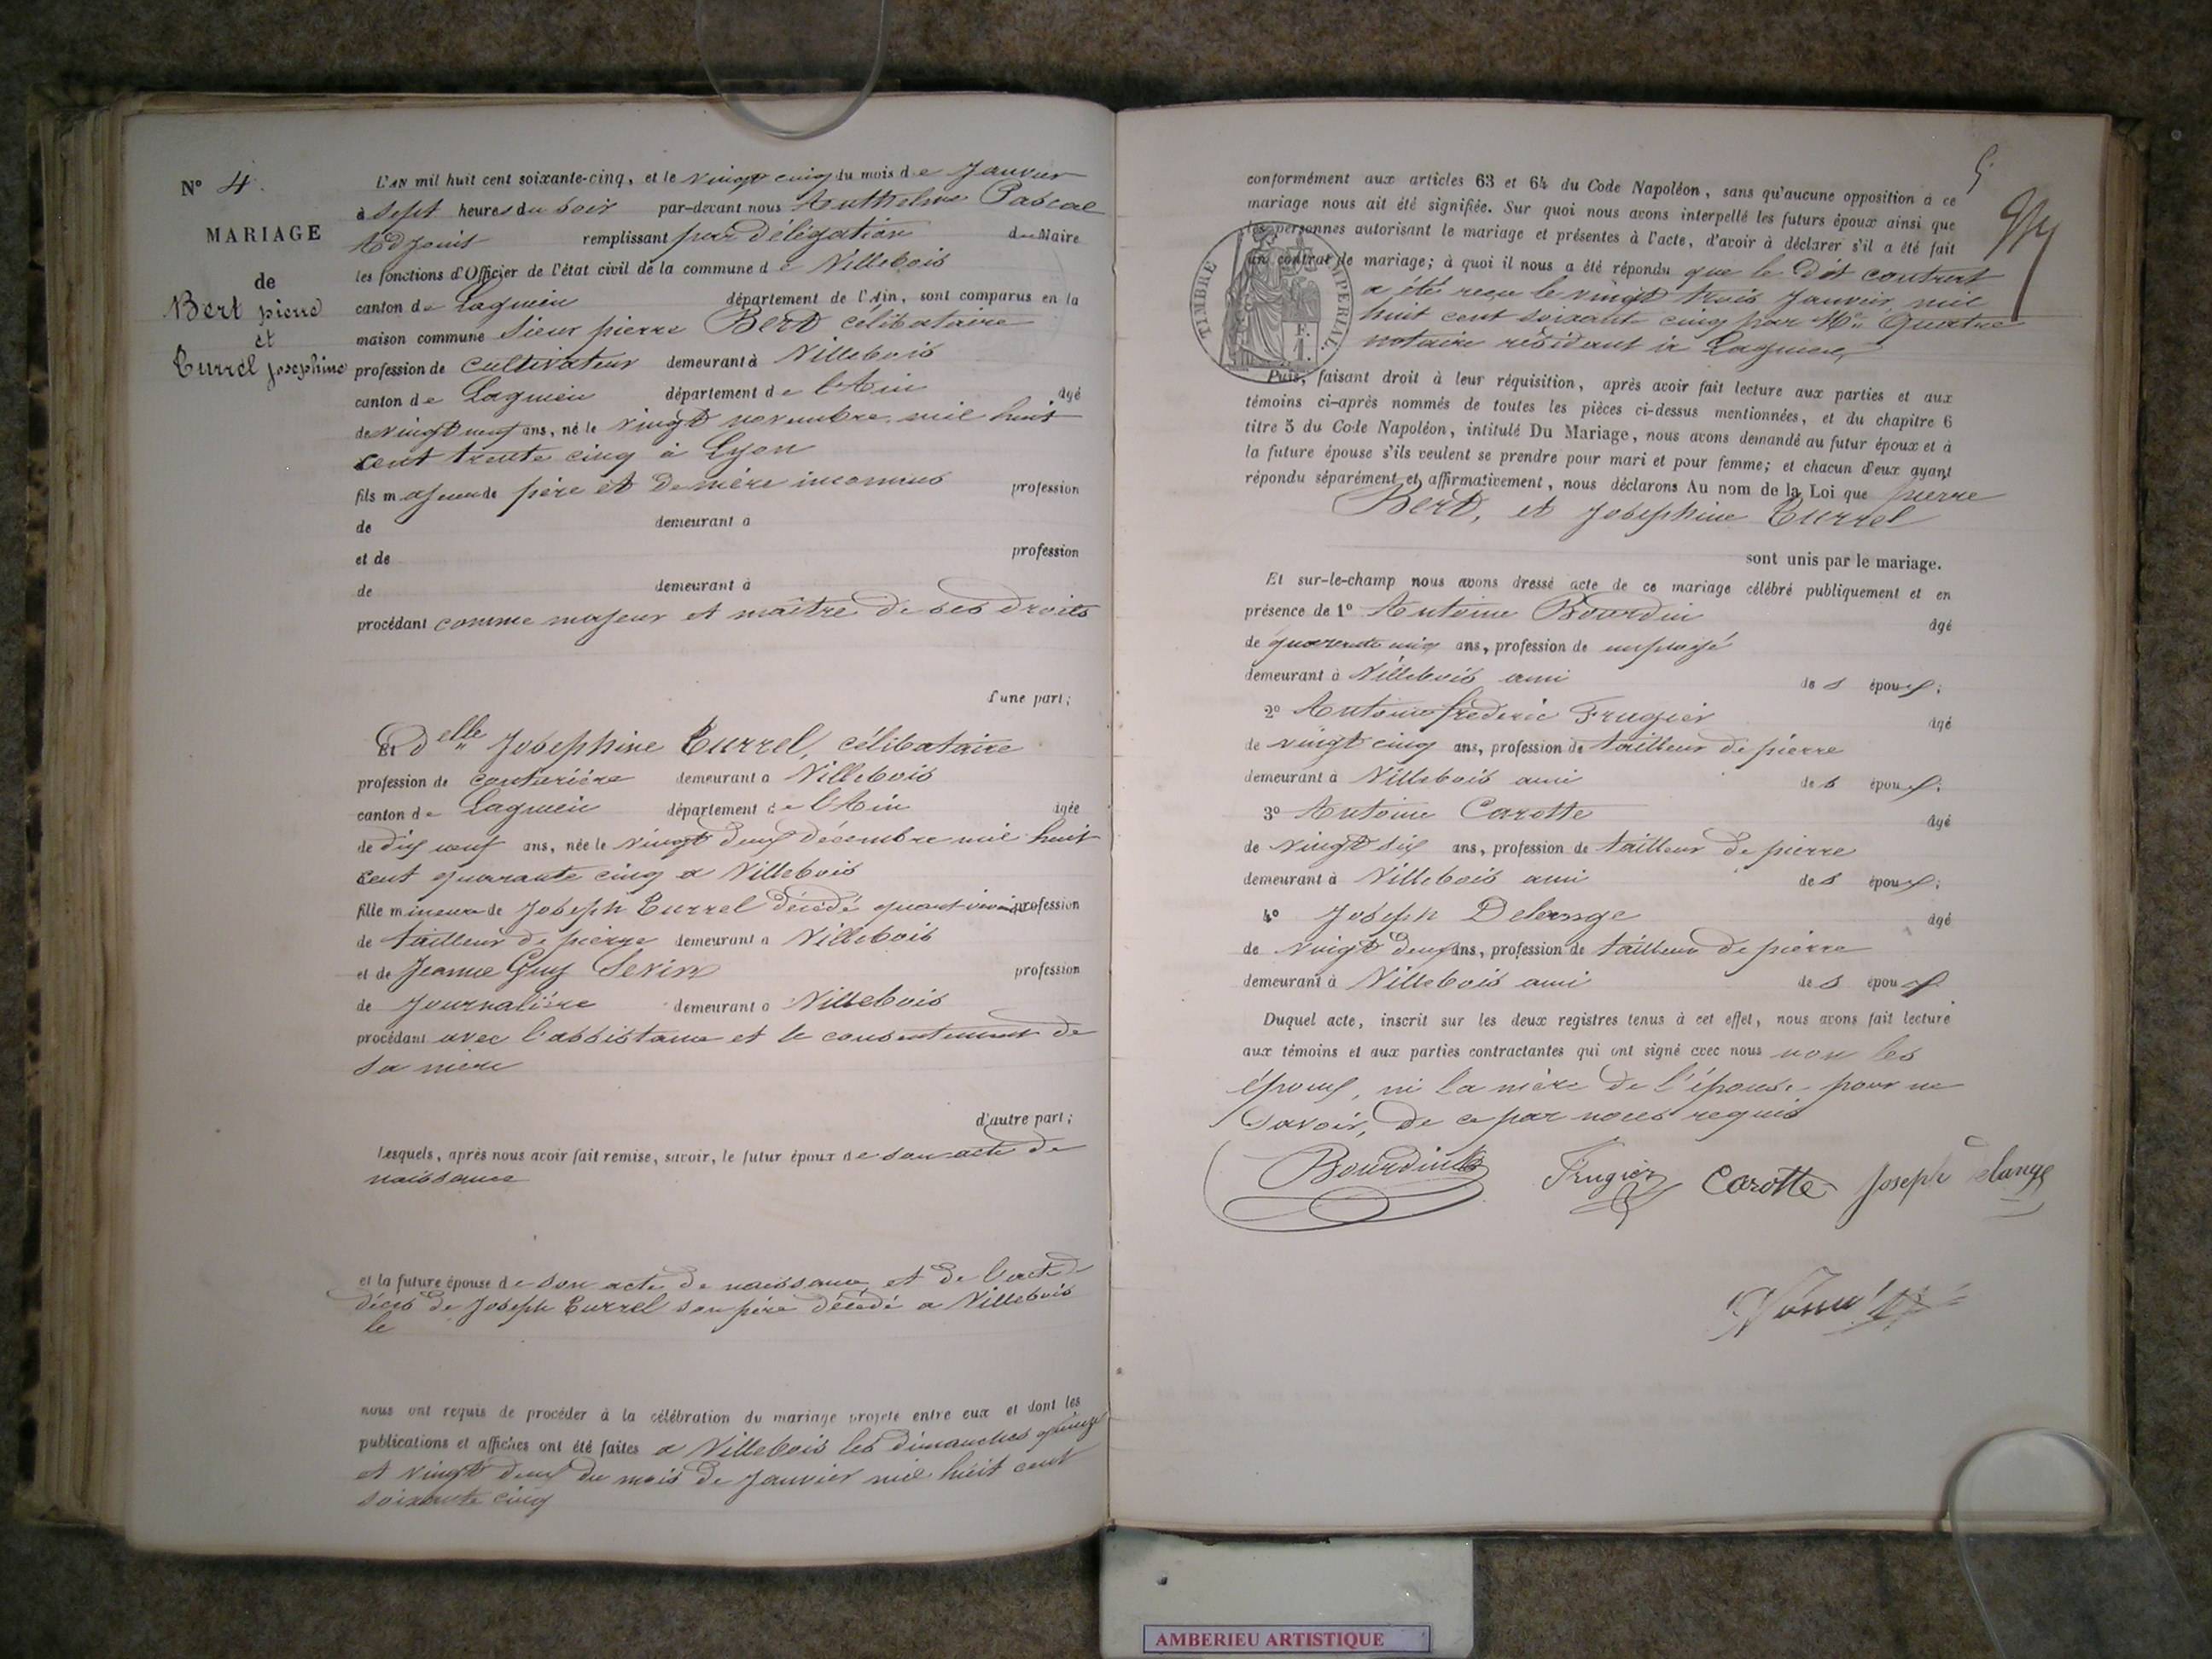 N° 4.
MARIAGE
de
Bert pierre
et
Currel Josephine
L'AN mil huit cent soixante-cinq, et le vingt cinq du mois de Janvier
à Sept heures du soir par-devant nous Anthelme Pascal
Adjoint remplissant par délégation du Maire
les fonctions d'Officier de l'état civil de la commune de Villebois
canton de Lagnieu département de l'Ain, sont comparus en la
maison commune Sieur pierre Bert célibataire
profession de cultivateur demeurant à Villebois
canton de Lagnieu département de l'Ain âgé
de vingt neuf ans, né le vingt novembre mil huit
cent trente cinq à Lyon
fils majeur de père et de mère inconnus profession
de demeurant à
et de profession
de demeurant à
procédant comme majeur et maître de ses droits
d'une part;
Et Delle Josephine Currel, célibataire
profession de couturière demeurant à Villebois
canton de Lagnieu département de l'Ain âgée
de dix neuf ans, née le vingt deux décembre mil huit
cent quarante cinq à Villebois
fille mineure de Joseph Currel décédé quant vivait profession
de tailleur de pierre demeurant à Villebois
et de Jeanne Guy Serin profession
de Journalière demeurant à Villebois
procédant avec l'assistance et le consentement de
sa mère
d'autre part;
Lesquels, après nous avoir fait remise, savoir, le futur époux de son acte de
naissance
et la future épouse de son acte de naissance et de l'acte de
décès de Joseph Currel son père décédé a Villebois
le
nous ont requis de procéder à la célébration du mariage projeté entre eux et dont les
publications et affiches ont été faites a Villebois les dimanches quinze
et vingt deux du mois de Janvier mil huit cent
soixante cinq
5
conformément aux articles 63 et 64 du Code Napoléon, sans qu'aucune opposition à ce
mariage nous ait été signifiée. Sur quoi nous avons interpellé les futurs époux ainsi que
les personnes autorisant le mariage et présentes à l'acte, d'avoir à déclarer s'il a été fait
un contrat de mariage; à quoi il nous a été répondu que le dit contrat
a été reçu le vingt trois Janvier mil
huit cent soixante cinq par Me Quatre
notaire résidant à Lagnieu
TIMBRE IMPERIAL
F. 1.
Puis, faisant droit à leur réquisition, après avoir fait lecture aux parties et aux
témoins ci-après nommés de toutes les pièces ci-dessus mentionnées, et du chapitre 6
titre 5 du Code Napoléon, intitulé Du Mariage, nous avons demandé au futur époux et à
la future épouse s'ils veulent se prendre pour mari et pour femme; et chacun d'eux ayant
répondu séparément et affirmativement, nous déclarons Au nom de la Loi que pierre
Bert, et Josephine Currel
sont unis par le mariage.
Et sur-le-champ nous avons dressé acte de ce mariage célébré publiquement et en
présence de 1° Antoine Bourdin âgé
de quarante cinq ans, profession de employé
demeurant à Villebois ami des époux;
2° Antoine frederic Frugier âgé
de vingt cinq ans, profession de tailleur de pierre
demeurant à Villebois ami des époux;
3° Antoine Carotte âgé
de vingt six ans, profession de tailleur de pierre
demeurant à Villebois ami des époux;
4° Joseph Delange âgé
de vingt deux ans, profession de tailleur de pierre
demeurant à Villebois ami des époux
Duquel acte, inscrit sur les deux registres tenus à cet effet, nous avons fait lecture
aux témoins et aux parties contractantes qui ont signé avec nous non les
époux, ni la mère de l'épouse pour ne
savoir, de ce par nous requis
Bourdin Frugier Carotte Joseph Delange
AMBERIEU ARTISTIQUE